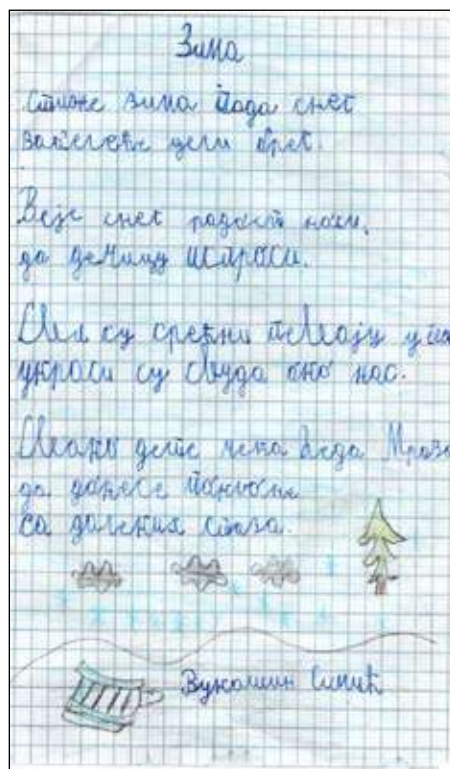 Зима
Стиже зима пада снег
забелеће цели брег.
Веје снег радост носи,
да дечицу
Сви су срећни певају у
украси су свуда око нас.
Свако дете чека Деда Мраза
да донесе поклоне
са далеких стаза.
Вукашин